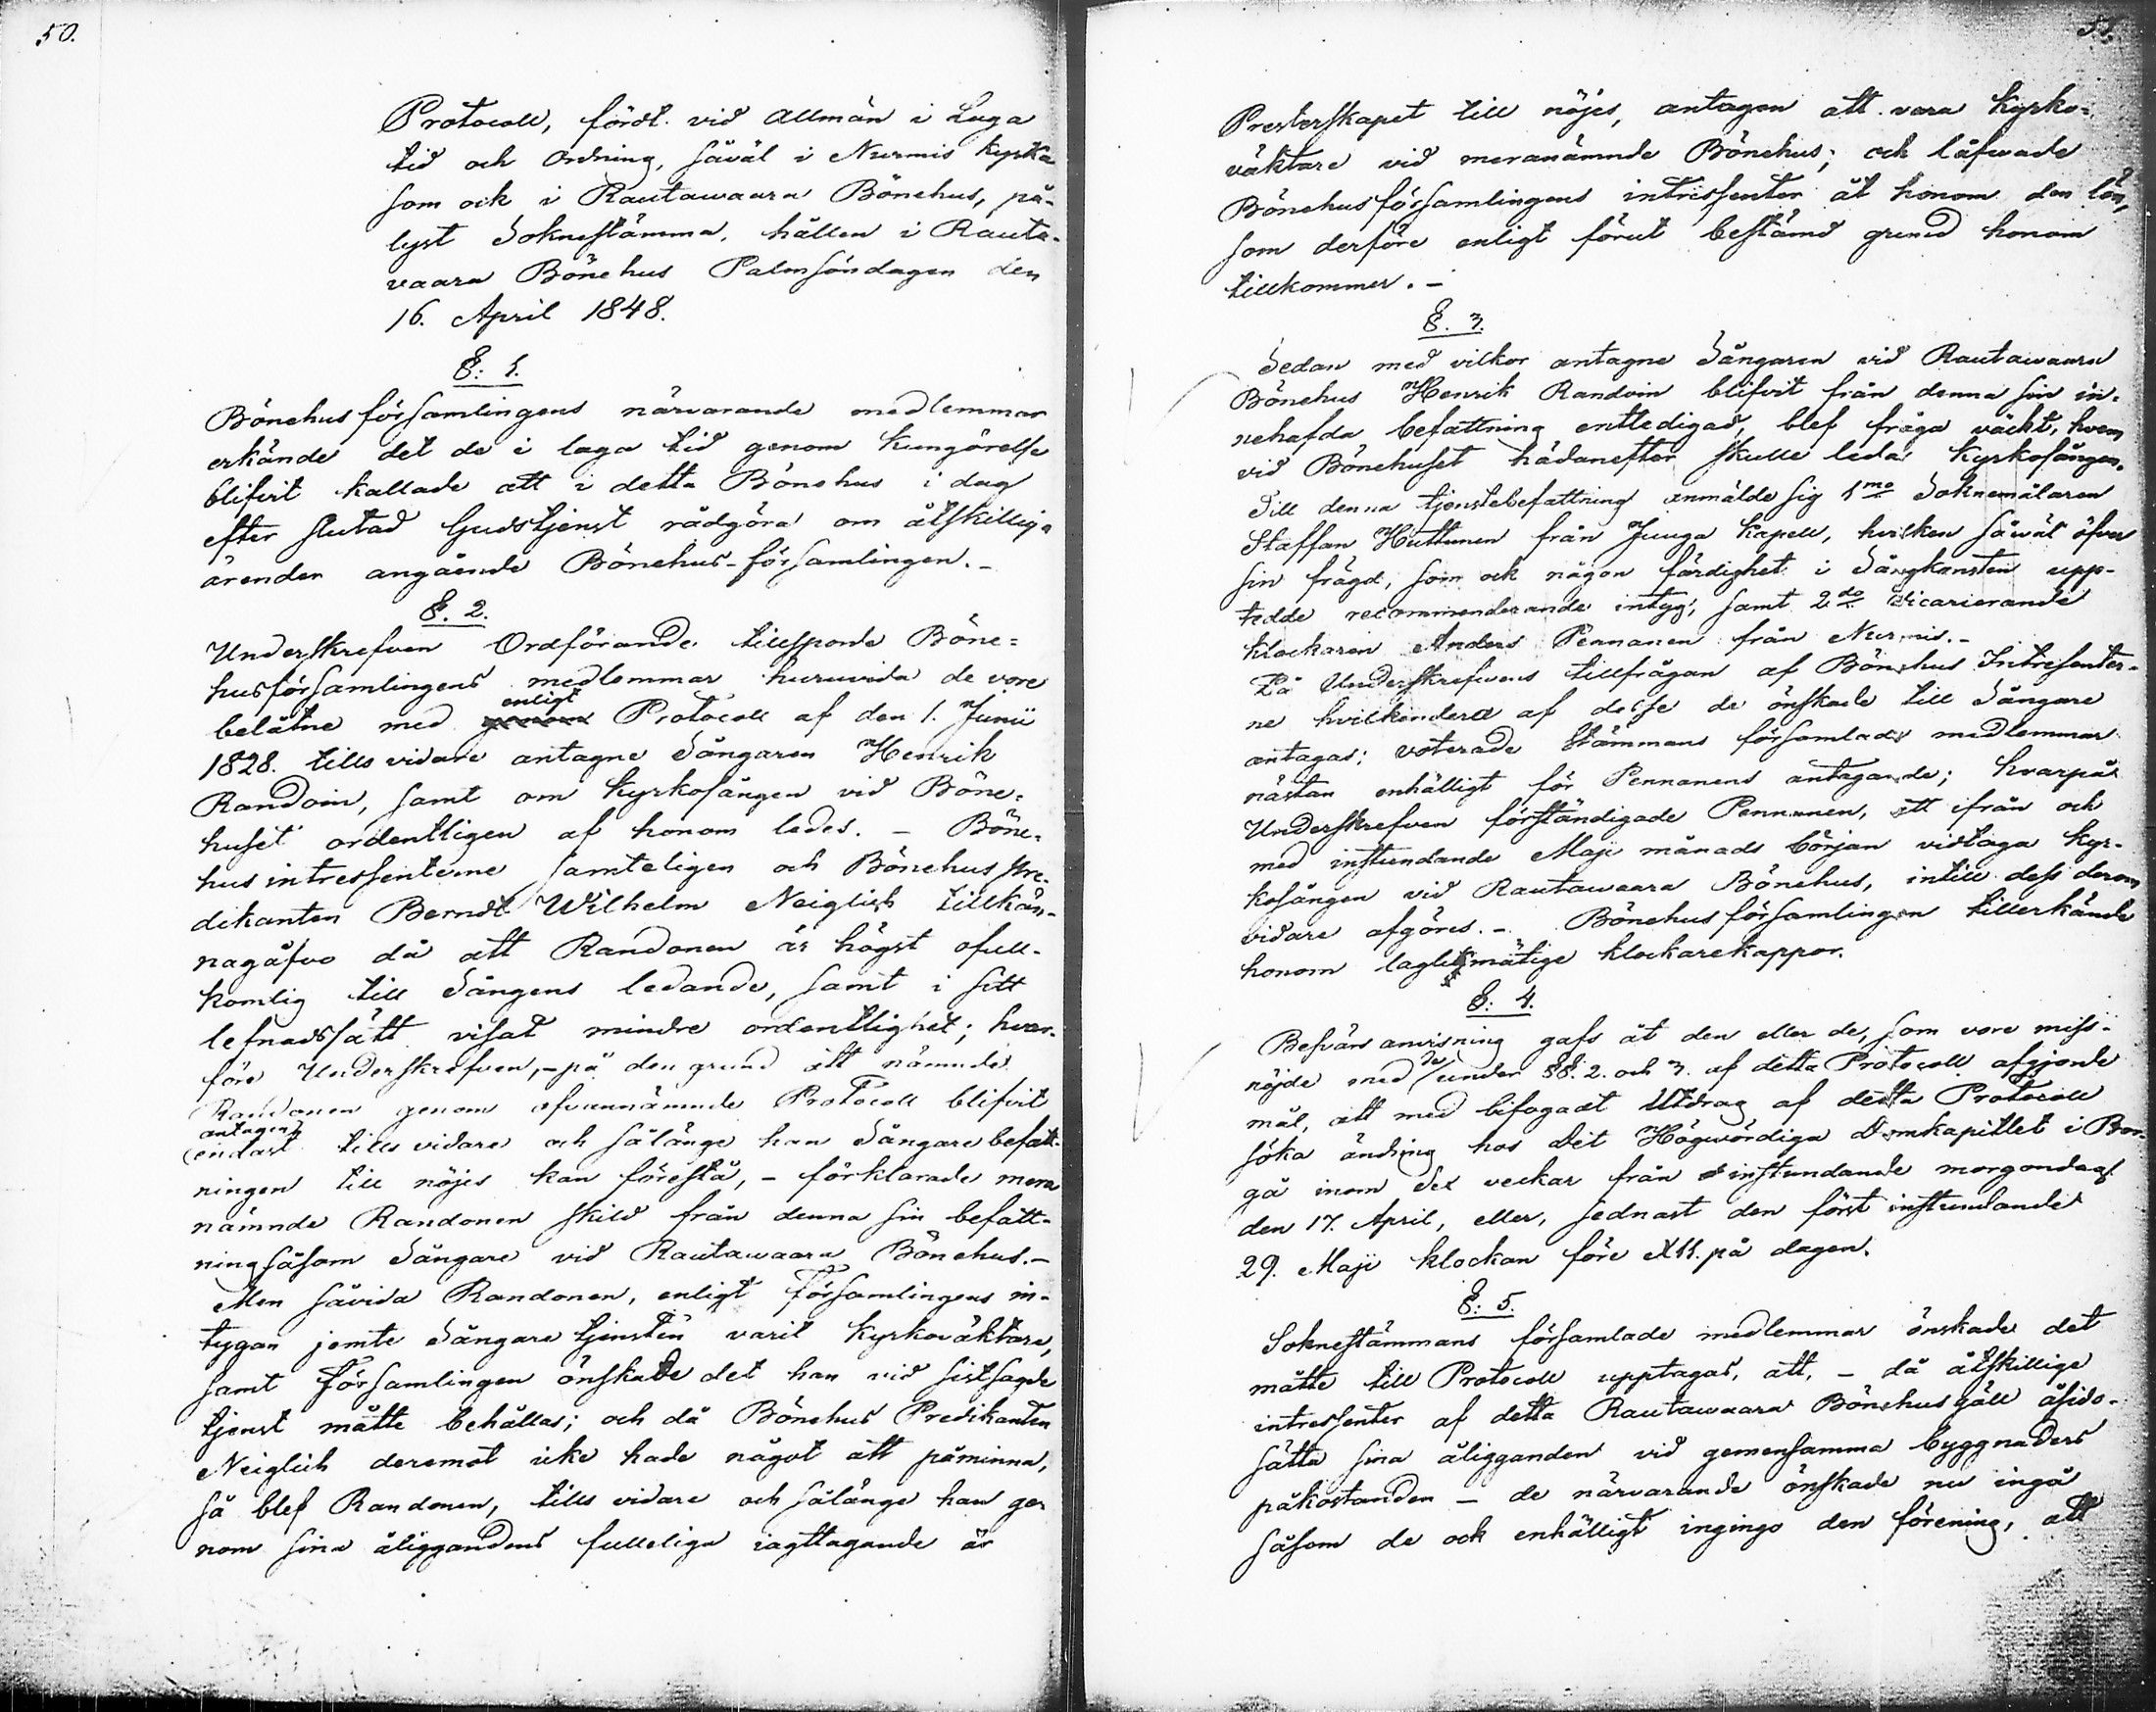 50.
Protocoll, fördt vid allmän i Laga
tid och Ordning, såväl i Nurmis kyrka
som ock i Rautawaara Bönehus, på-
lyst Soknestämma, hållen i Rauta-
vaara Bönehus Palmsöndagen den
16. April 1848.
§: 1.
Bönehusförsamlingens närvarande medlemmar
erkände det de i laga tid genom kungörelse
blifvit kallade att i detta Bönehus i dag
efter slutad Gudstjenst rådgöra om åtskillig a
ärender angående Bönehus-församlingen.-
§. 2.
Underskrefven Ordförande tillsporde Böne=
husförsamlingens medlemmar huruvida de vore
belåtne med enligt Protocoll af den 1. Junii
1828. tills vidare antagne Sångaren Henrik
Randoin, samt om kyrkosången vid Böne-
huset ordentligen af honom ledes. - Böne-
hus intressenterne samteligen och Bönehus Pre-
dikanten Berndt Wilhelm Neiglick tillkän-
nagåfvo då att Randonen är högst ofull-
komlig till Sångens ledande, samt i sitt
lefnadssätt visat mindre ordentlighet; hvar-
före Underskrefven,- på den grund att nämnde
Randonen genom ofvannämnde Protocoll blifvit
antagen
endast tills vidare och sålänge han Sångare befatt-
ningen till nöjes kan förestå, - förklarade mera
nämnde Randonen skild från denna sin befatt-
ning såsom Sångare vid Rautawaara Bönehus.-
Men såvida Randonen, enligt Församlingens in-
tygan jemte Sångare tjensten varit kyrkoväktare,
samt Församlingen önskade det han vid sistsagde
tjenst måtte behållas; och då Bönehus Predikanten
Neiglick deremot icke hade något att påminna,
så blef Randonen, tills vidare och sålänge han ge-
nom sina åliggandens fulleliga iagttagande är
51.
Presterskapet till nöjes, antagen att vara kyrko-
väktare vid meranämnde Bönehus; och låfvade
Bönehusförsamlingens intressenter åt honom den lön,
som derföre enligt förut bestämd grund honom
tillkommer. -
§. 3.
Sedan med vilkor antagne Sångaren vid Rautawaara
Bönehus Henrik Randoin blifvit från denna sin in-
nehafda befattning entledigad, blef fråga väckt, hvem
vid Bönehuset hädanefter skulle leda kyrkosången.
Till denna tjenstebefattning anmälde sig 1mo Soknemålaren
Staffan Huttunen från Juuga Kapell, hvilken såväl öfver
sin frägd, som ock någon färdighet i Sångkonsten upp-
tedde recommenderande intyg, samt 2do Vicarierande
klockaren Anders Pennanen från Nurmis.-
På Underskrefvens tillfrågan af Bönehus Intressenter-
ne hvilkendera af desse de önskade till Sångare
antagas; voterade Stämmans församlade medlemmar
nästan enhälligt för Pennanens antagande; hvarpå
Underskrefven förständigade Pennanen, att ifrån och
med instundande Maji månads början vidtaga kyr-
kosången vid Rautawaara Bönehus, intill dess derom
vidare afgöres.- Bönehusförsamlingen tillerkände
honom laglikmätige klockarekappor.
§: 4.
Besvärs anvisning gafs åt den eller de, som vore miss-
nöjde med de under §§. 2. och 3. af detta Protocoll afgjorde
mål, att med bifogadt Utdrag af detta Protocoll
söka ändring hos det Högvördiga Domkapitlet i Bor-
gå inom Sex veckar från instundande morgondag
den 17. April, eller, sednast den först instundande
29. Maji klockan före XII. på dagen.
§: 5.
Soknestämmans församlade medlemmar önskade det
måtte till Protocoll upptagas, att, - då åtskillige
intressenter af detta Rautawaara Bönehusgäll åsido-
sätta sina åligganden vid gemensamma byggnaders
påkostanden - de närvarande önskade nu ingå
såsom de ock enhälligt ingingo den förening, att